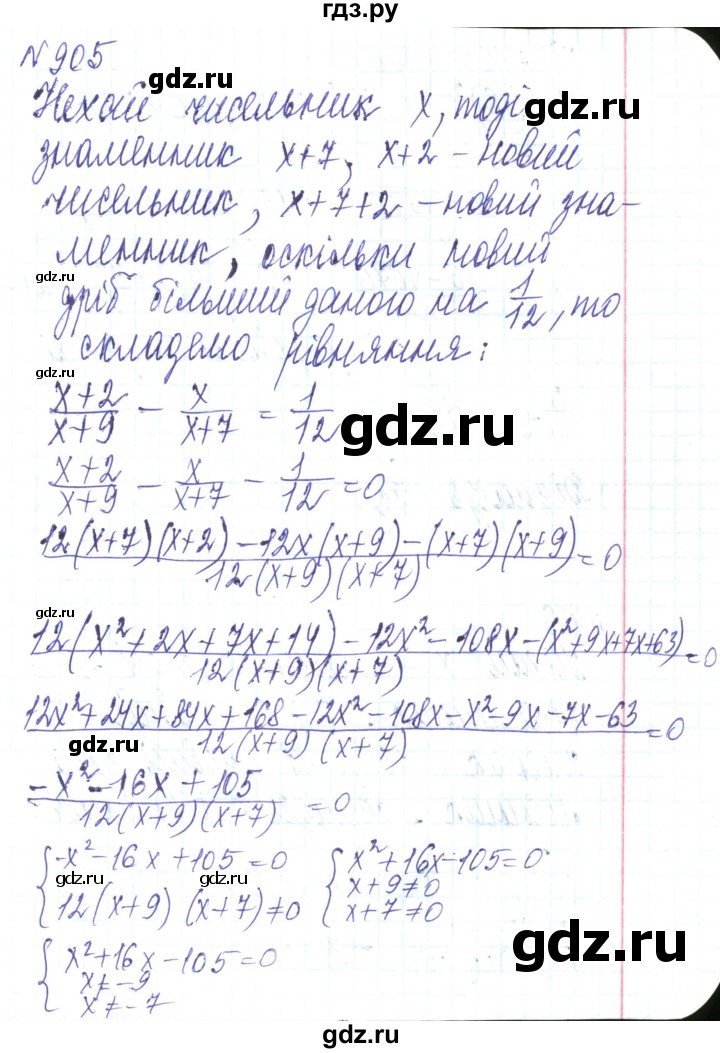 гдз.ру
№905
gdz.ru
Нехай чисельник x, тоді
gdz.ru
знаменник x+7, x+2 – новий
чисельник, x+7+2 – новий зна-
gdz.ru
менник, оскільки новий
gdz.ru
дріб більший даного на 1/12, то
складемо рівняння:
gdz.ru
(x+2)/(x+9) – x/(x+7) = 1/12
gdz.ru
(x+2)/(x+9) – x/(x+7) – 1/12 = 0
gdz.ru
(12(x+7)(x+2) – 12x(x+9) – (x+7)(x+9))/(12(x+9)(x+7)) = 0
gdz.ru
(12(x²+2x+7x+14) – 12x² – 108x – (x²+9x+7x+63))/(12(x+9)(x+7)) = 0
(12x²+24x+84x+168–12x²–108x–x²–9x–7x–63)/(12(x+9)(x+7)) = 0
gdz.ru
(–x²–16x+105)/(12(x+9)(x+7)) = 0
{ –x²–16x+105=0 { x²+16x–105=0
gdz.ru gdz.ru
12(x+9)(x+7)≠0 x+9≠0
x+7≠0
{ x²+16x–105=0
x≠–9
x≠–7
gdz.ru
gdz.ru
gdz.ru
гдз.ру